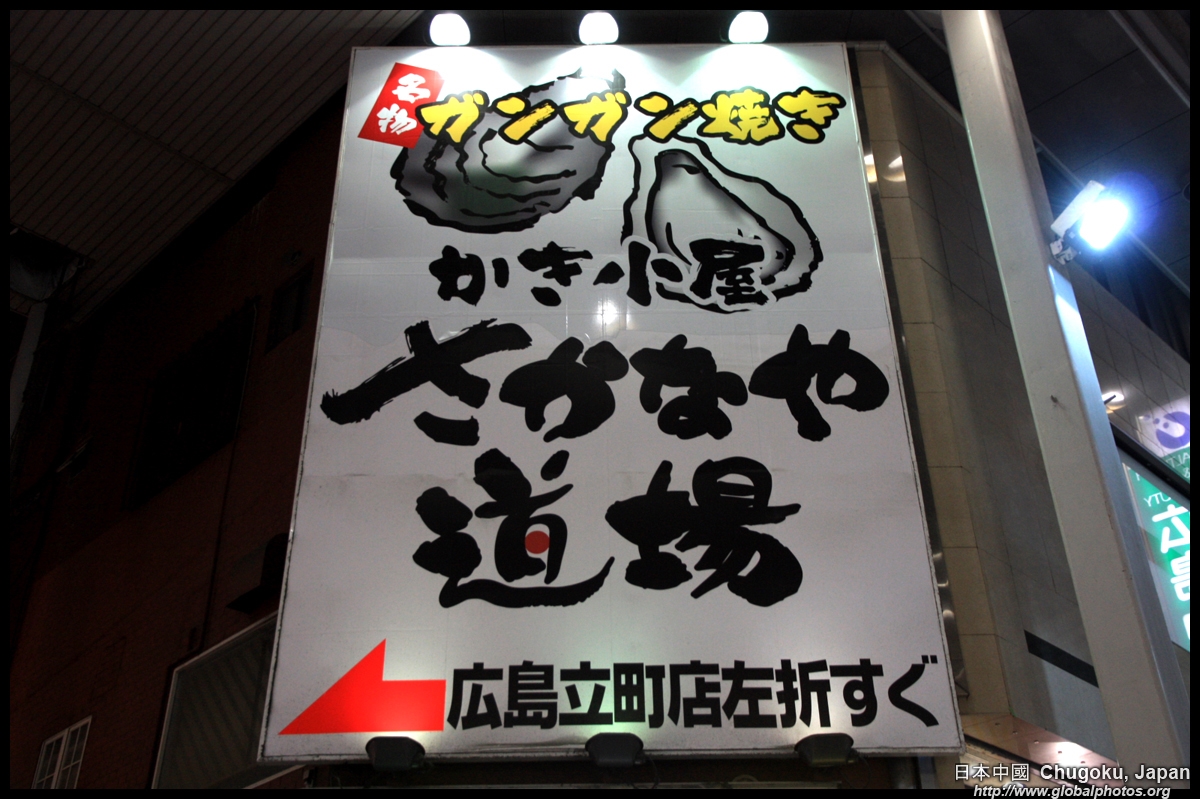 名物
ガンガン焼き
かき小屋
さかなや
道場
広島立町店左折すぐ
日本中國 Chugoku, Japan
http://www.globalphotos.org